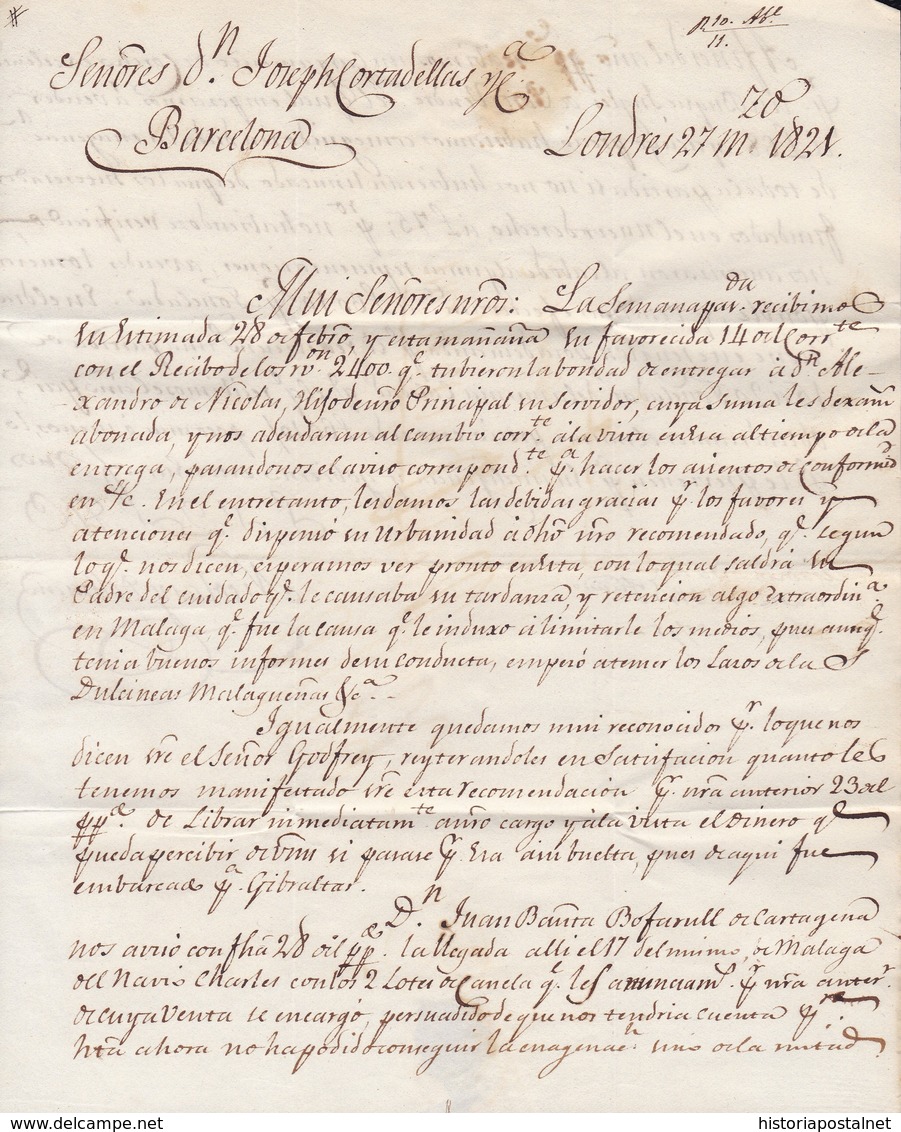 #
R 10. Abe
11.
Señores Dn. Joseph Cortadellas y Ca
Barcelona
Londres 27 Mzo. 1821.
Mui Señores nros: La Semana pasda. recibimos
su estimada 28 de febro, y esta mañana su favorecida 14 del Corrte
con el Recibo de los rvon. 2400. qe. tubieron la bondad de entregar a dn Ale-
xandro de Nicolas, Hijo de nro Principal su Servidor, cuya suma les dexam
abonada, y nos adeudaran al cambio corrte. a la vista en esa al tiempo de la
entrega, pasandonos el aviso correspondte. pa. hacer los asientos de conformd
en cta. En el entretanto, les damos las debidas gracias pr. los favores y
atenciones qe. dispensó su Urbanidad a dho nro recomendado, qe. segun
lo qe. nos dicen, esperamos ver pronto en esta, con lo qual saldrá su
Padre del cuidado qe. le causaba su tardanza, y retencion algo extraordina.
en Malaga qe. fue la causa qe. le induxo a limitarle los medios, pues aunqe.
tenia buenos informes de su conducta, emperó a temer los Lazos de las
Dulcineas Malagueñas &ca.
Igualmente quedamos mui reconocidos pr. lo que nos
dicen sre el Señor Godfrey, reyterandoles en Satisfacion quanto les
tenemos manifestado sre esta recomendacion pr. nra anterior 23 del
ppo. de Librar inmediatamte a nro cargo y a la vista el dinero qe
pueda percibir de Vms si pasase pr. Esa a su buelta, pues de aqui fue
embarcado pa. Gibraltar.
Dn. Juan Bauta Bofarull de Cartagena
nos avisó con fha 28 del ppdo. la llegada alli el 17 del mismo, de Malaga
del Navio Charles con los 2 Lotes de Canela qe. les anunciamos. pr nra anterr.
de cuya venta se encargó, persuadido de que nos tendria cuenta pr.
hta ahora no ha podido conseguir la enagenacn. sino de la mitad
historiapostalnet
historiapostalnet